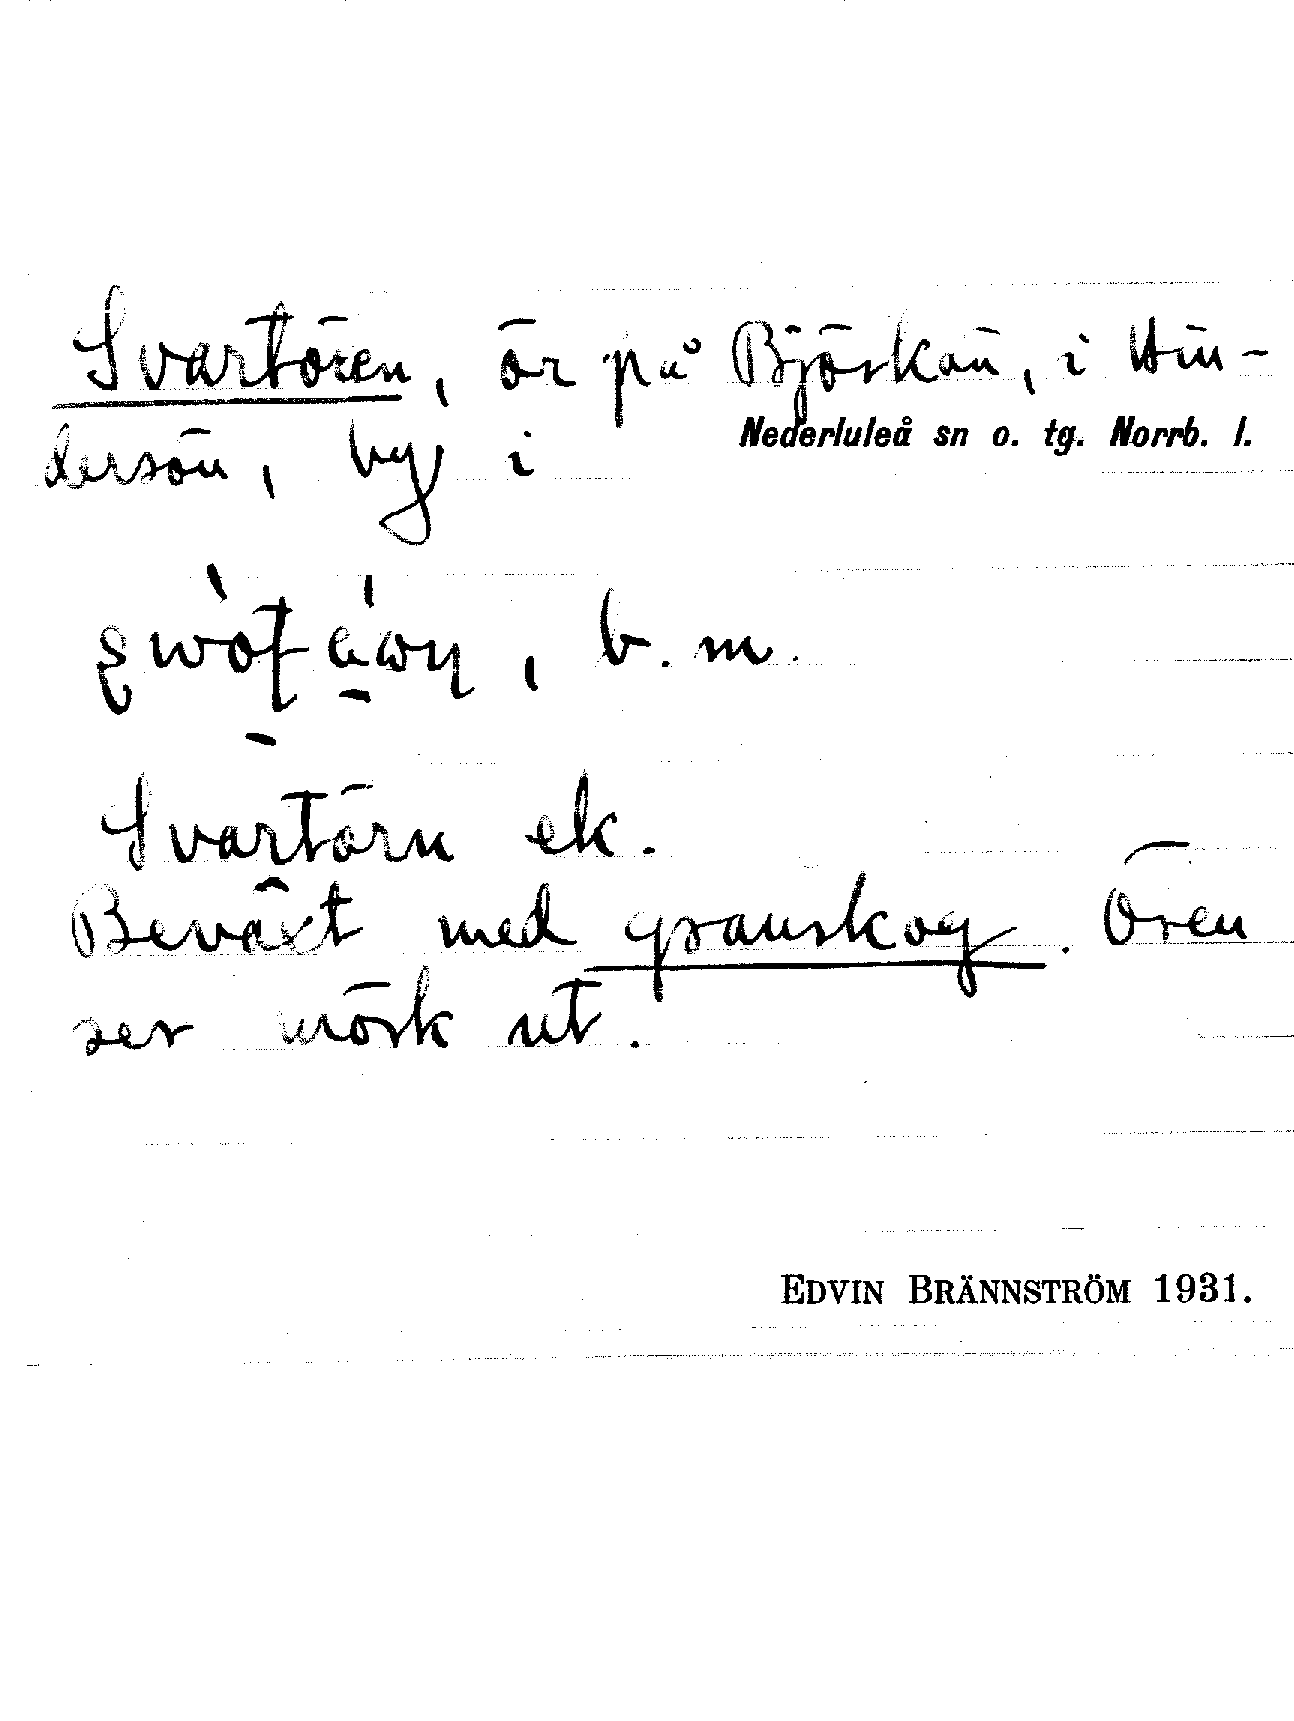 Svartören, ör på Björkön, i Hin-
dersön, by i Nederluleå sn o. tg. Norrb. l.
, b. m.
Svartörn ek.
Beväxt med granskog. Ören
ser mörk ut.
EDVIN BRÄNNSTRÖM 1931.